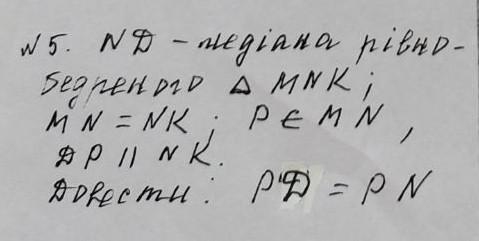 №5. ND - медіана рівно-
бедреного △ MNK;
MN = NK; P ∈ MN,
DP || NK.
Довести: PD = PN